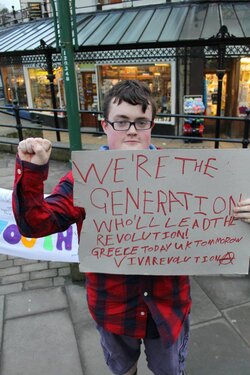 WE'RE THE
GENERATION
WHO'LL LEAD THE
REVOLUTION!
GREECE TODAY UK TOMMOROW
VIVA REVOLUTION
OUTH